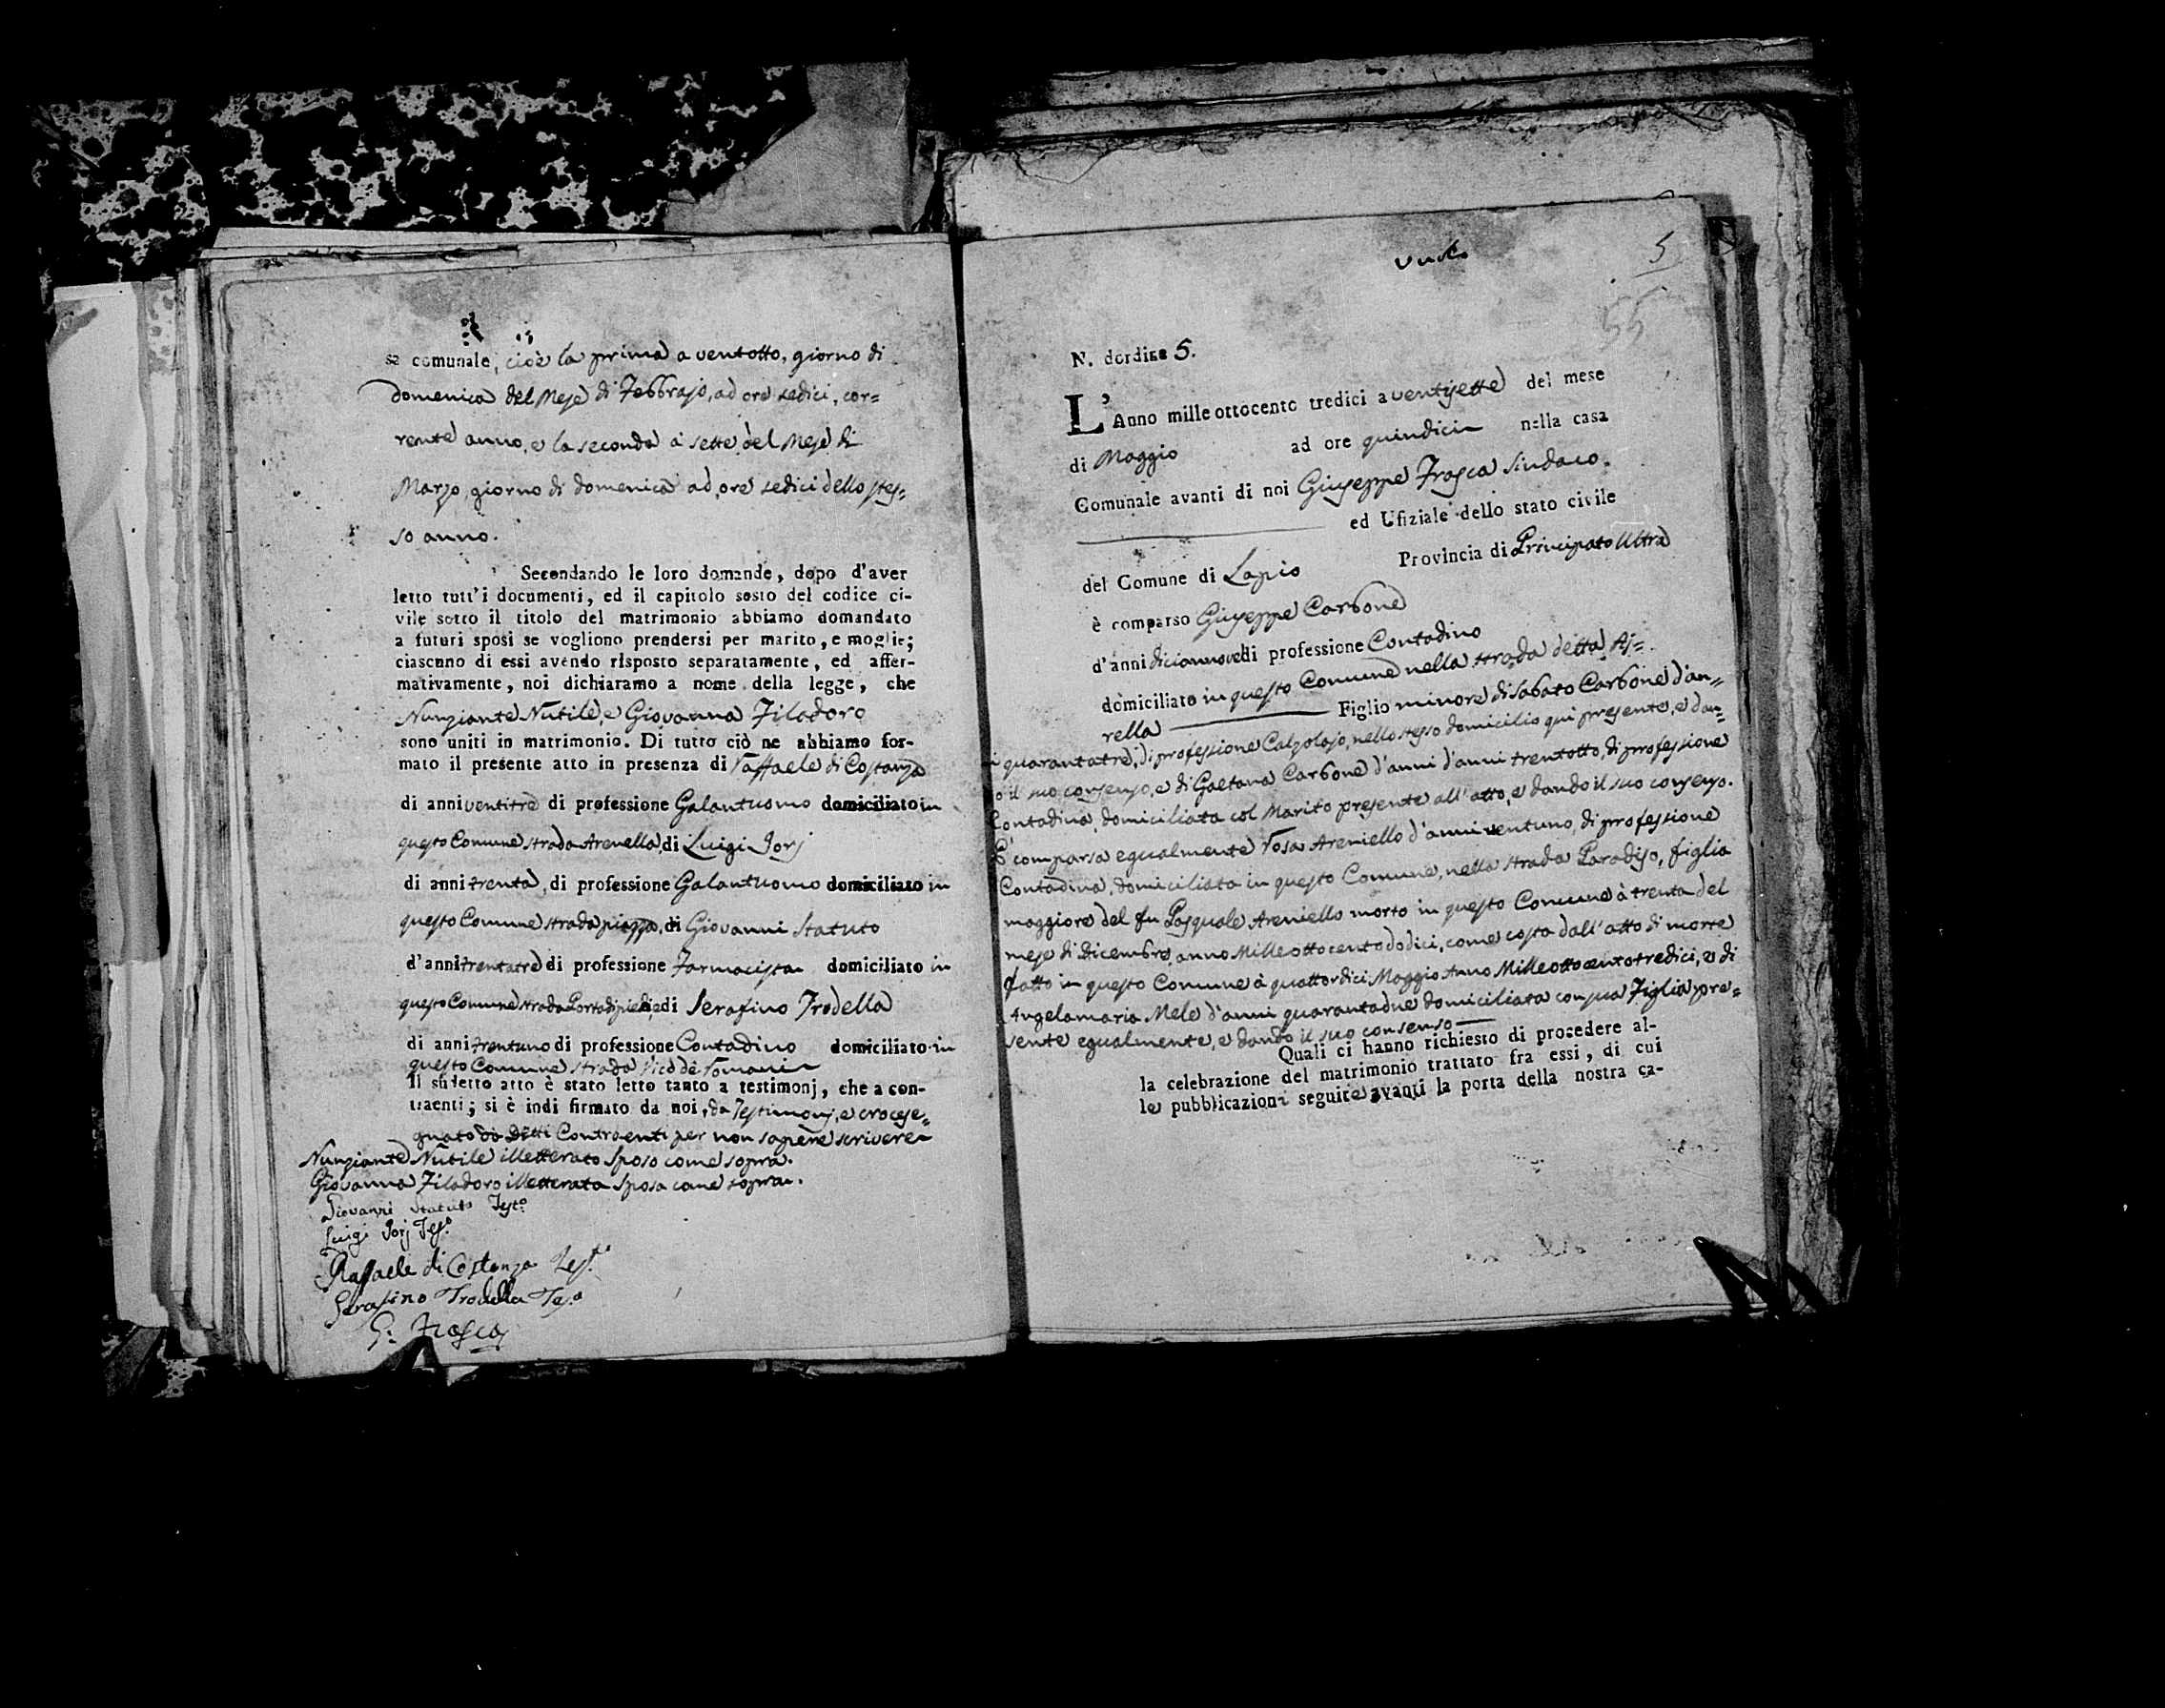 se comunale, cioè la prima a ventotto, giorno di
domenica del Mese di Febbrajo, ad ore sedici, cor=
rente anno, e la seconda a sette del Mese di
Marzo, giorno di domenica ad ore sedici dello stes=
so anno.
Secondando le loro domande, dopo d'aver
letto tutt'i documenti, ed il capitolo sesto del codice ci-
vile sotto il titolo del matrimonio abbiamo domandato
a futuri sposi se vogliono prendersi per marito, e moglie;
ciascuno di essi avendo risposto separatamente, ed affer-
mativamente, noi dichiaramo a nome della legge, che
Nunziante Nutile, e Giovanna Filadoro
sono uniti in matrimonio. Di tutto ciò ne abbiamo for-
mato il presente atto in presenza di Raffaele di Costanza
di anni ventitrè di professione Galantuomo domiciliato in
questo Comune strada Arenella, di Luigi Jorj
di anni trenta, di professione Galantuomo domiciliato in
questo Comune strada piazza, di Giovanni Statuto
d'anni trentatrè di professione Farmacista domiciliato in
questo Comune strada Portadipiedi, e di Serafino Trodella
di anni trentuno di professione Contadino domiciliato in
questo Comune strada Vico de Romani
Il sudetto atto è stato letto tanto a testimonj, che a con-
traenti; si è indi firmato da noi, da Testimonj, e crocese=
gnato da Detti Contraenti per non sapere scrivere
Nunziante Nutile illetterato Sposo come sopra.
Giovanna Filadoro illetterata Sposa come sopra.
Giovanni Statuto Testº
Luigi Jorj Tesº
Raffaele di Costanza Testº
Serafino Trodella Tesº
G: Frasca
5
55
N. dordine 5.
L'Anno mille ottocento tredici a ventisette del mese
di Maggio ad ore quindici nella casa
Comunale avanti di noi Giuseppe Frasca Sindaco.
ed Ufiziale dello stato civile
del Comune di Lapio Provincia di Principato Ultra
è comparso Giuseppe Carbone
d'anni diciannove di professione Contadino
domiciliato in questo Comune nella strada detta Aj=
rella Figlio minore di Sabato Carbone d'an=
ni quarantatrè, di professione Calzolajo, nello stesso domicilio qui presente, e dan=
o il suo consenso, e di Gaetana Carbone d'anni d'anni trentotto, di professione
Contadina, domiciliata col Marito presente all'atto, e dando il suo consenso.
È comparsa egualmente Rosa Areniello d'anni ventuno, di professione
Contadina, domiciliata in questo Comune, nella strada Paradiso, figlia
maggiore del fu Pasquale Areniello morto in questo Comune à trenta del
mese di Dicembre, anno Mille ottocento dodici, come costa dall'atto di morte
fatto in questo Comune à quattordici Maggio Anno Mille ottocento tredici, e di
Angelamaria Mele d'anni quarantadue domiciliata con sua Figlia pre=
sente egualmente, e dando il suo consenso
Quali ci hanno richiesto di procedere al-
la celebrazione del matrimonio trattato fra essi, di cui
le pubblicazioni seguite avanti la porta della nostra ca-